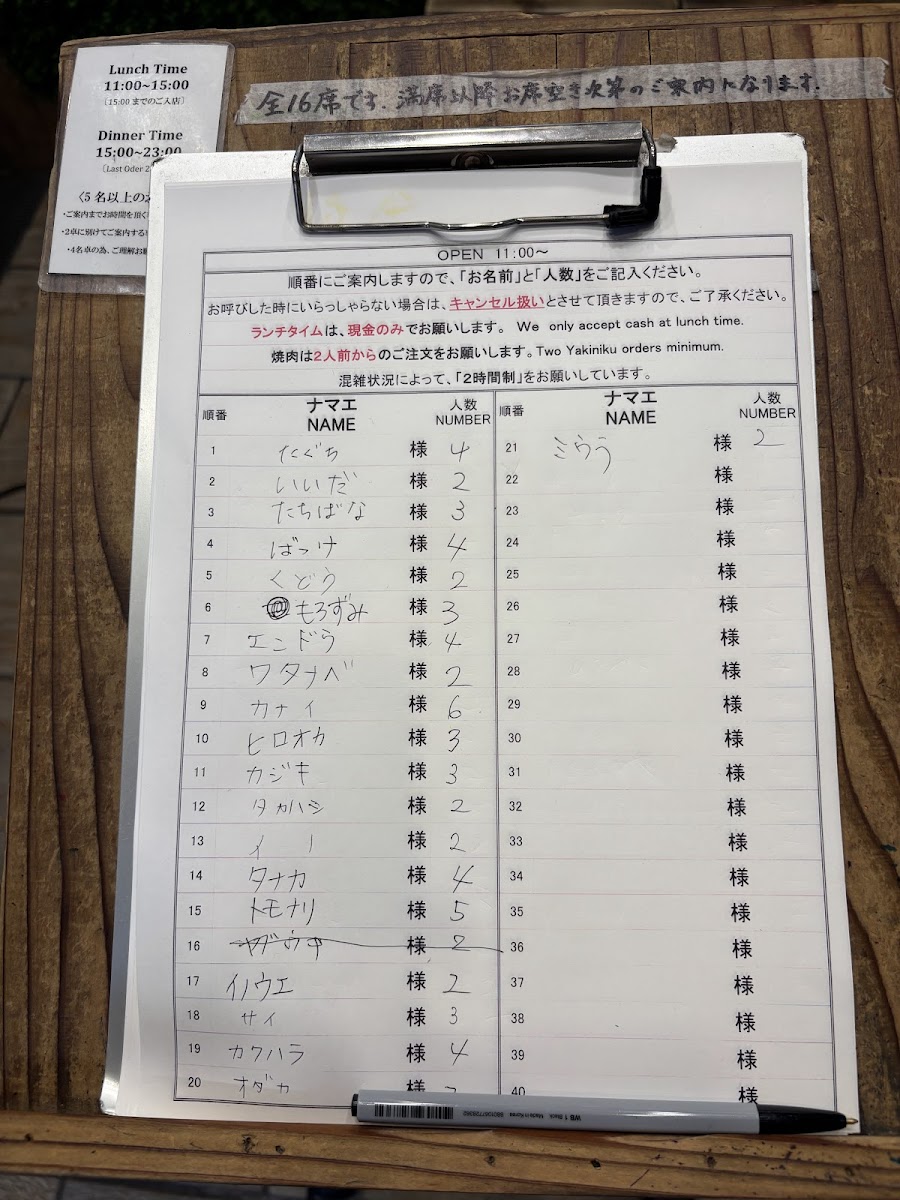 Lunch Time
11:00~15:00
〔15:00 までのご入店〕
Dinner Time
15:00~23:00
〔Last Oder 2
〈5 名以上の
・ご案内までお時間を頂く
・2卓に別けてご案内する
・4名卓の為、ご理解お
全16席です.満席以降お席空き次第のご案内になります.
OPEN 11:00～
順番にご案内しますので、「お名前」と「人数」をご記入ください。
お呼びした時にいらっしゃらない場合は、キャンセル扱いとさせて頂きますので、ご了承ください。
ランチタイムは、現金のみでお願いします。 We only accept cash at lunch time.
焼肉は2人前からのご注文をお願いします。Two Yakiniku orders minimum.
混雑状況によって、「2時間制」をお願いしています。
順番 ナマエ NAME 人数 NUMBER 順番 ナマエ NAME 人数 NUMBER
1 たぐち 様 4
2 いいだ 様 2
3 たちばな 様 3
4 ばっけ 様 4
5 くどう 様 2
6 もろずみ 様 3
7 エンドウ 様 4
8 ワタナベ 様 2
9 カナイ 様 6
10 ヒロオカ 様 3
11 カジキ 様 3
12 タカハシ 様 2
13 イー 様 2
14 タナカ 様 4
15 トモナリ 様 5
16 様 2
17 イノウエ 様 2
18 サイ 様 3
19 カワハラ 様 4
20 オダカ 様
21 ミウラ 様 2
22 様
23 様
24 様
25 様
26 様
27 様
28 様
29 様
30 様
31 様
32 様
33 様
34 様
35 様
36 様
37 様
38 様
39 様
40 様